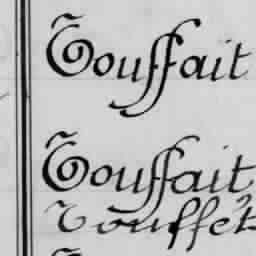 Touffait
Touffait,
Touffet